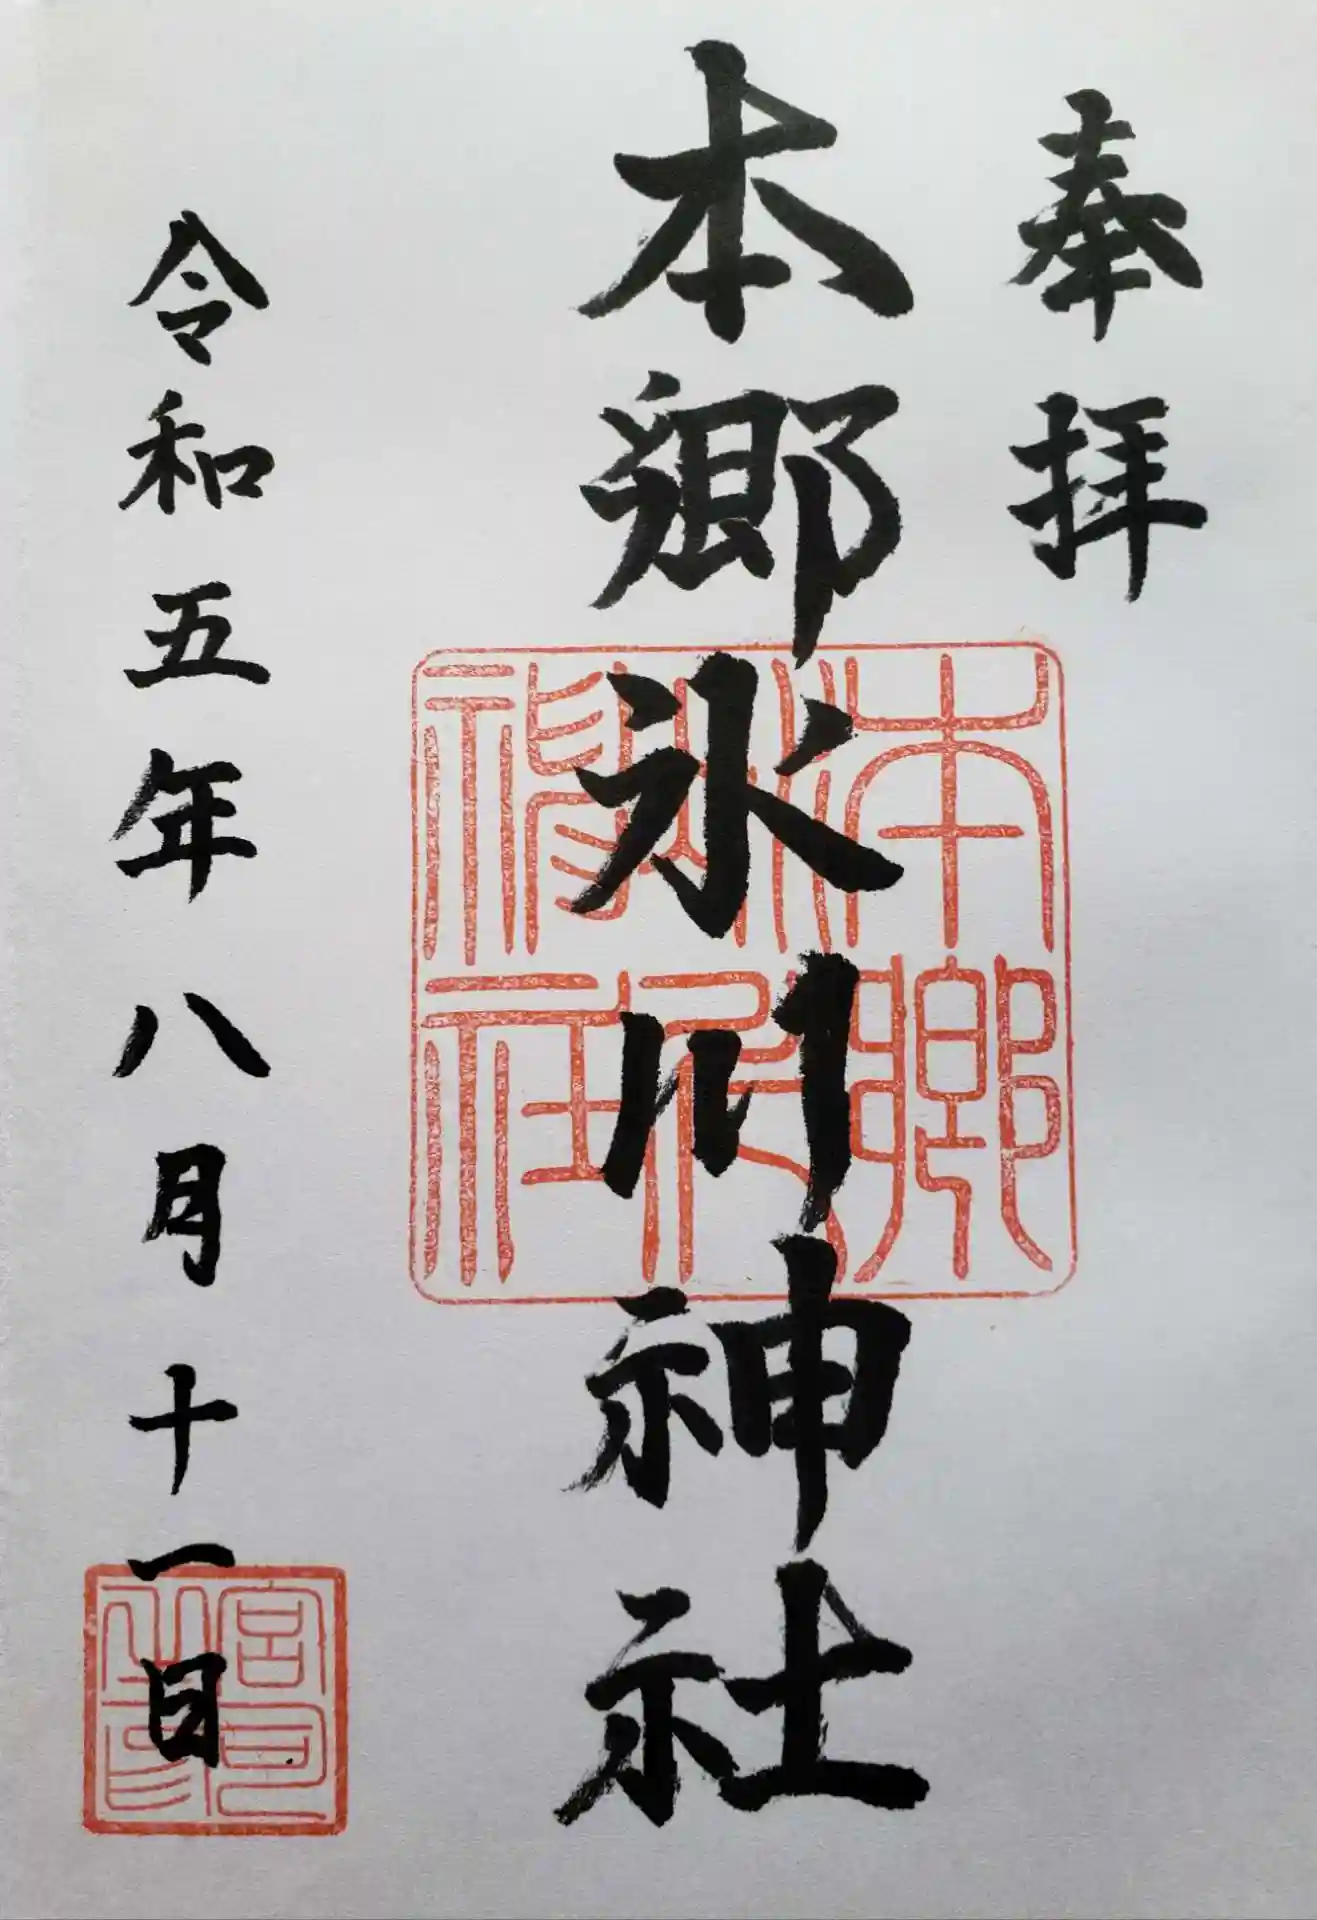 奉拝
本郷氷川神社
令和五年八月十一日
本郷
氷川
神社
宮司
之印